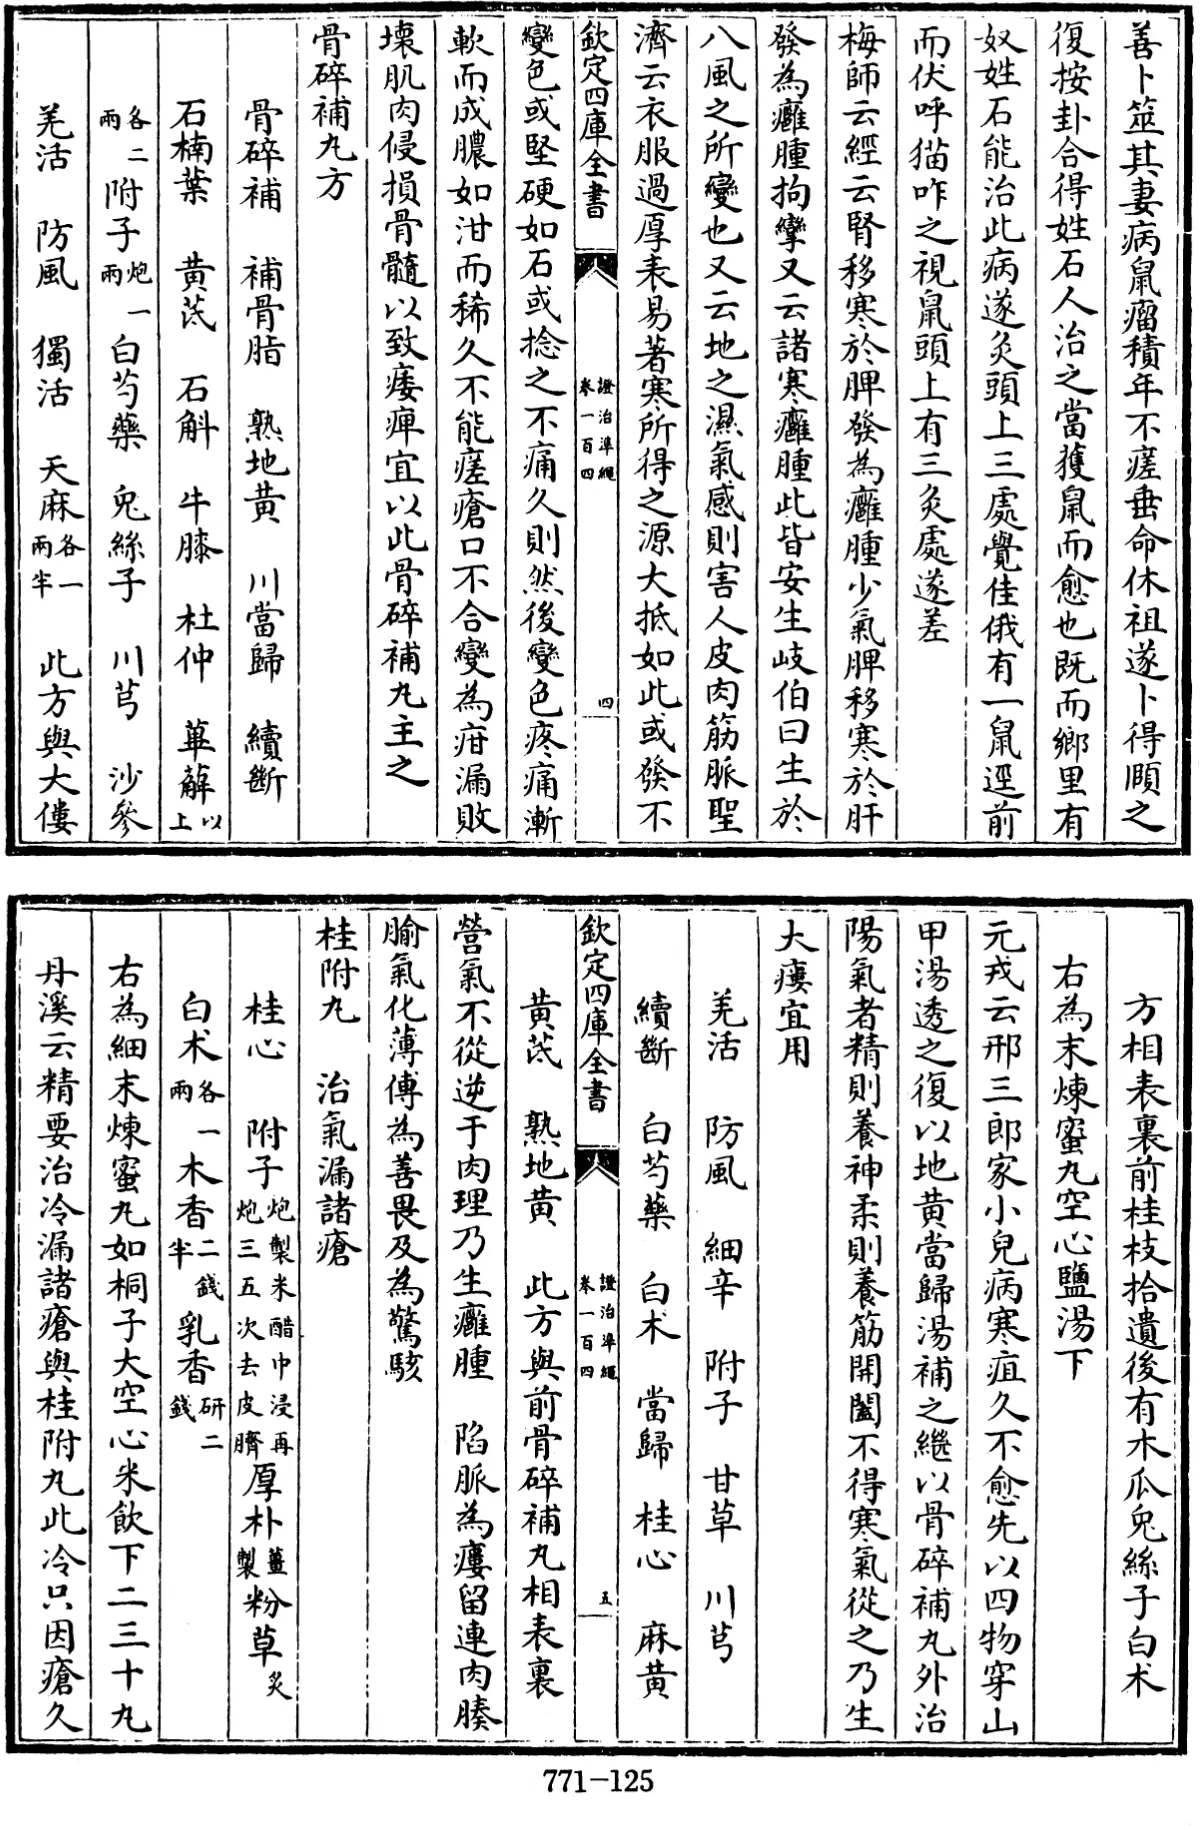 善卜筮其妻病鼠瘤積年不瘥垂命休祖遂卜得頤之
復按卦合得姓石人治之當獲鼠而愈也既而鄉里有
奴姓石能治此病遂灸頭上三處覺佳俄有一鼠逕前
而伏呼猫咋之視鼠頭上有三灸處遂差
梅師云經云腎移寒於脾發為癰腫少氣脾移寒於肝
發為癰腫拘攣又云諸寒癰腫此皆安生岐伯曰生於
八風之所變也又云地之濕氣感則害人皮肉筋脈聖
濟云衣服過厚表易著寒所得之源大抵如此或發不
欽定四庫全書 證治準繩 卷一百四 四
變色或堅硬如石或捻之不痛久則然後變色疼痛漸
軟而成膿如泔而稀久不能瘥瘡口不合變為疳漏敗
壞肌肉侵損骨髓以致痿痺宜以此骨碎補丸主之
骨碎補丸方
骨碎補 補骨脂 熟地黄 川當歸 續斷
石楠葉 黄茋 石斛 牛膝 杜仲 萆薢以上
各二兩 附子炮一兩 白芍藥 兔絲子 川芎 沙參
羌活 防風 獨活 天麻各一兩半 此方與大僂
方相表裏前桂枝拾遺後有木瓜兔絲子白术
右為末煉蜜丸空心鹽湯下
元戎云邢三郎家小兒病寒疽久不愈先以四物穿山
甲湯透之復以地黄當歸湯補之繼以骨碎補丸外治
陽氣者精則養神柔則養筋開闔不得寒氣從之乃生
大瘻宜用
羌活 防風 細辛 附子 甘草 川芎
續斷 白芍藥 白术 當歸 桂心 麻黄
欽定四庫全書 證治準繩 卷一百四 五
黄茋 熟地黄 此方與前骨碎補丸相表裏
營氣不從逆于肉理乃生癰腫 陷脈為瘻留連肉腠
腧氣化薄傳為善畏及為驚駭
桂附丸 治氣漏諸瘡
桂心 附子炮製米醋中浸再炮三五次去皮臍 厚朴薑製 粉草炙
白术各一兩 木香二錢半 乳香研二錢
右為細末煉蜜丸如桐子大空心米飲下二三十丸
丹溪云精要治冷漏諸瘡與桂附丸此冷只因瘡久
771-125